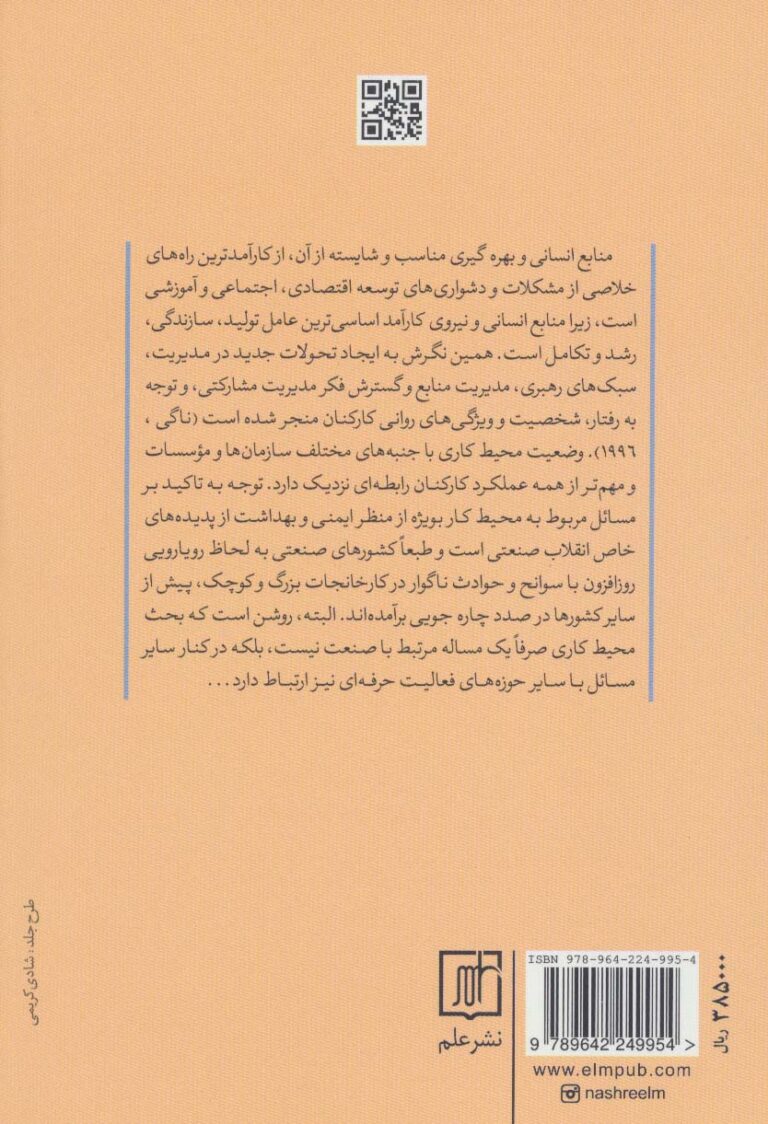 منابع انسانی و بهره گیری مناسب و شایسته از آن، از کارآمدترین راه‌های
خلاصی از مشکلات و دشواری‌های توسعه اقتصادی، اجتماعی و آموزشی
است، زیرا منابع انسانی و نیروی کارآمد اساسی‌ترین عامل تولید، سازندگی،
رشد و تکامل است. همین نگرش به ایجاد تحولات جدید در مدیریت،
سبک‌های رهبری، مدیریت منابع و گسترش فکر مدیریت مشارکتی، و توجه
به رفتار، شخصیت و ویژگی‌های روانی کارکنان منجر شده است (ناگی ،
۱۹۹۶). وضعیت محیط کاری با جنبه‌های مختلف سازمان‌ها و مؤسسات
و مهم‌تر از همه عملکرد کارکنان رابطه‌ای نزدیک دارد. توجه به تاکید بر
مسائل مربوط به محیط کار بویژه از منظر ایمنی و بهداشت از پدیده‌های
خاص انقلاب صنعتی است و طبعاً کشورهای صنعتی به لحاظ رویارویی
روزافزون با سوانح و حوادث ناگوار در کارخانجات بزرگ و کوچک، پیش از
سایر کشورها در صدد چاره جویی برآمده‌اند. البته، روشن است که بحث
محیط کاری صرفاً یک مساله مرتبط با صنعت نیست، بلکه در کنار سایر
مسائل با سایر حوزه‌های فعالیت حرفه‌ای نیز ارتباط دارد...
طرح جلد: شادی کریمی
علم
نشر علم
ISBN 978-964-224-995-4
9 789642 249954 >
۳۸۵۰۰۰ ریال
www.elmpub.com
nashreelm